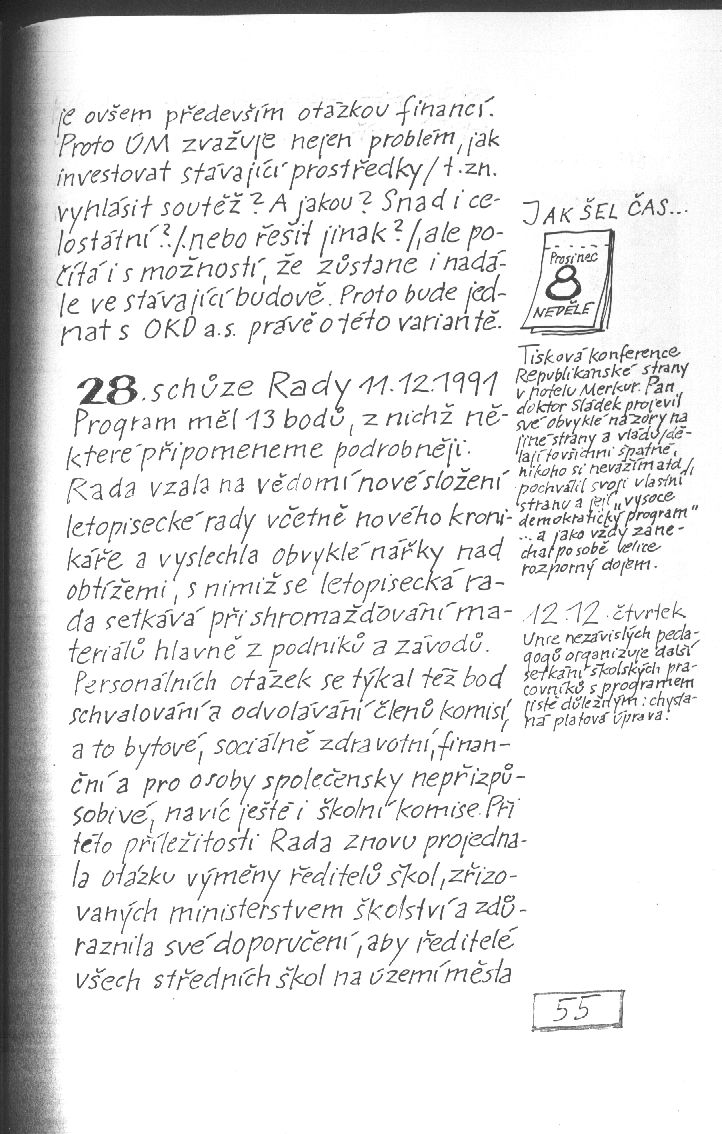 je ovšem především otázkou financí.
Proto ÚM zvažuje nejen problém, jak
investovat stávající prostředky /t.zn.
vyhlásit soutěž? A jakou? Snad i ce-
lostátní?/, nebo řešit jinak?/, ale po-
čítá i s možností, že zůstane i nadá-
le ve stávající budově. Proto bude jed-
nat s OKD a.s. právě o této variantě.
28. schůze Rady 11.12.1991
Program měl 13 bodů, z nichž ně-
které připomeneme podrobněji.
Rada vzala na vědomí nové složení
letopisecké rady včetně nového kroni-
káře a vyslechla obvyklé nářky nad
obtížemi, s nimiž se letopisecká ra-
da setkává při shromažďování ma-
teriálů hlavně z podniků a závodů.
Personálních otázek se týkal též bod
schvalování a odvolávání členů komisí,
a to bytové, sociálně zdravotní, finan-
ční a pro osoby společensky nepřizpů-
sobivé, navíc ještě i školní komise. Při
této příležitosti Rada znovu projedna-
la otázku výměny ředitelů škol, zřizo-
vaných ministerstvem školství a zdů-
raznila své doporučení, aby ředitelé
všech středních škol na území města
JAK ŠEL ČAS...
Prosinec
8
NEDĚLE
Tisková konference
Republikánské strany
v hotelu Merkur. Pan
doktor Sládek projevil
své obvyklé názory na
jiné strany a vládu/dě-
lají to všichni špatně,
nikoho si nevážím atd/,
pochválil svoji vlastní
stranu a její „vysoce
demokratický program"
... a jako vždy zane-
chal po sobě velice
rozporný dojem.
12.12. čtvrtek
Unie nezávislých peda-
gogů organizuje další
setkání školských pra-
covníků s programem
jistě důležným: chysta-
ná platová úprava.
55